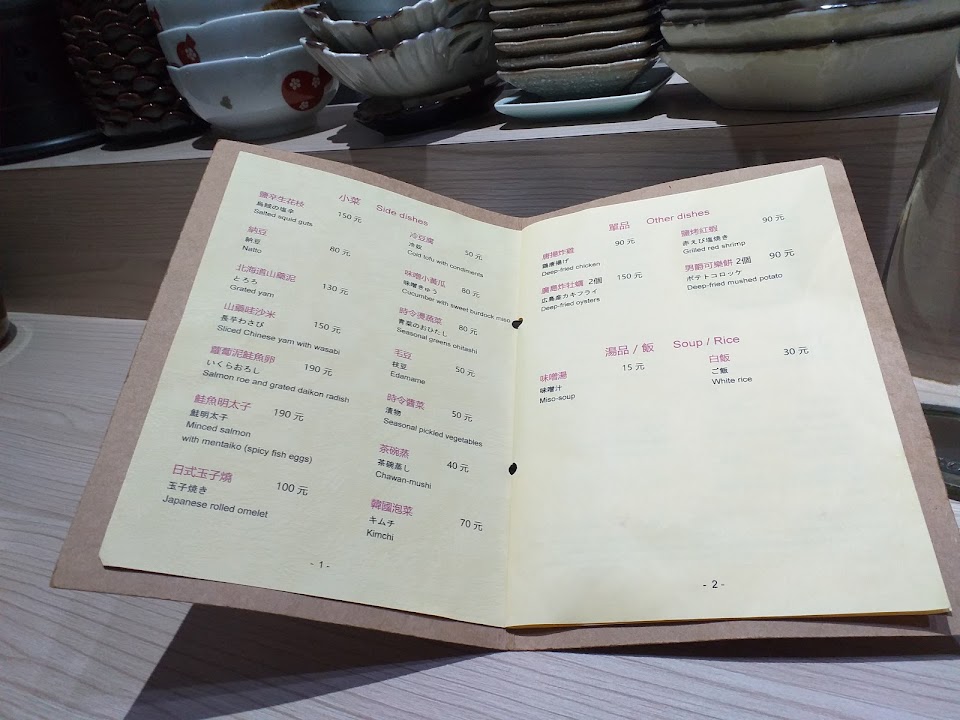 小菜 Side dishes
鹽辛生花枝
烏賊の塩辛 150 元
Salted squid guts
納豆
納豆 80 元
Natto
北海道山藥泥
とろろ 130 元
Grated yam
山藥哇沙米
長芋わさび 150 元
Sliced Chinese yam with wasabi
蘿蔔泥鮭魚卵
いくらおろし 190 元
Salmon roe and grated daikon radish
鮭魚明太子 190 元
鮭明太子
Minced salmon
with mentaiko (spicy fish eggs)
日式玉子燒
玉子焼き 100 元
Japanese rolled omelet
冷豆腐
冷奴 50 元
Cold tofu with condiments
味噌小黃瓜
味噌きゅう 80 元
Cucumber with sweet burdock miso
時令燙蔬菜
青菜のおひたし 80 元
Seasonal greens ohitashi
毛豆
枝豆 50 元
Edamame
時令醬菜
漬物 50 元
Seasonal pickled vegetables
茶碗蒸
茶碗蒸し 40 元
Chawan-mushi
韓國泡菜
キムチ 70 元
Kimchi
- 1 -
單品 Other dishes
唐揚炸雞 90 元
鶏唐揚げ
Deep-fried chicken
廣島炸牡蠣 2個 150 元
広島産カキフライ
Deep-fried oysters
鹽烤紅蝦 90 元
赤えび塩焼き
Grilled red shrimp
男爵可樂餅 2個 90 元
ポテトコロッケ
Deep-fried mushed potato
湯品 / 飯 Soup / Rice
味噌湯 15 元
味噌汁
Miso-soup
白飯 30 元
ご飯
White rice
- 2 -